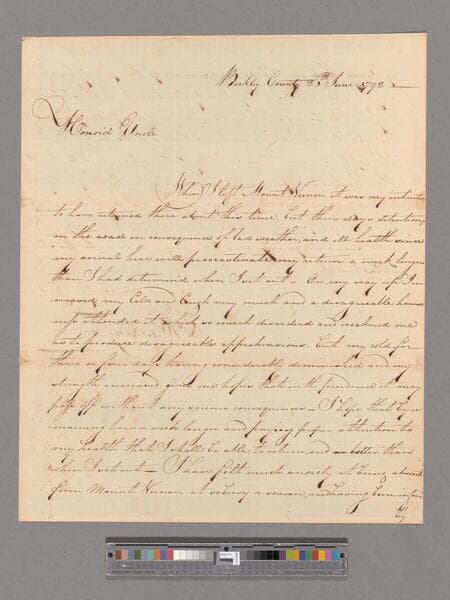 Berkley County 25th June 1792 —
Honord Uncle
When I left Mount Vernon it was my intention
to have returned there about this time, but three days detention
on the road in consequence of bad weather, and ill health since
my arrival here will procrastinate my return a week longer
than I had determind when I set out – On my way up I in
creased my Cold and Cough very much and a disagreeable hoarse
ness attended it which so much disorderd and weakened me
as to produce disagreeable apprehensions. But my cold for
three or four days having considerably diminished and my
strength increased, gives me hopes that with prudence it may
pass off without any serious consequences – I hope that by re
maining here a week longer and paying proper attention to
my health that I shall be able to return, and in better than
when I set out – I have felt much anxiety at being absent
from Mount Vernon at so busy a season, and having been inford
by